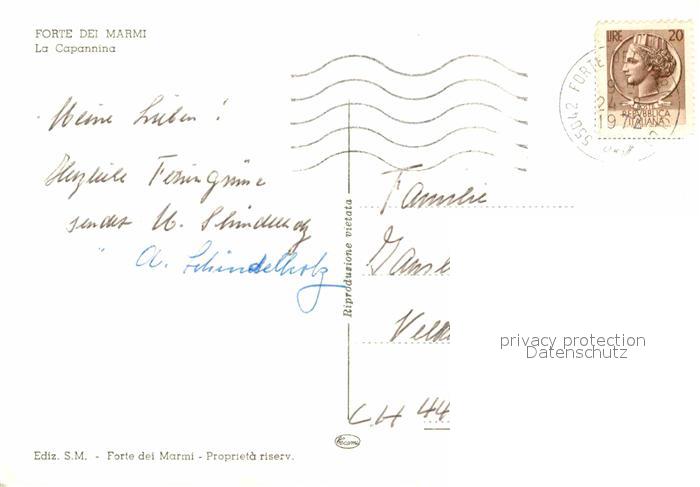 FORTE DEI MARMI
La Capannina
LIRE 20
REPUBBLICA
ITALIANA
55042 FORTE
Meine Lieben!
Herzliche Feriengrüsse
sendet U. Schindelholz
" A. Schindelholz
Riproduzione vietata
Familie
CH 44
privacy protection
Datenschutz
Ediz. S.M. - Forte dei Marmi - Proprietà riserv.